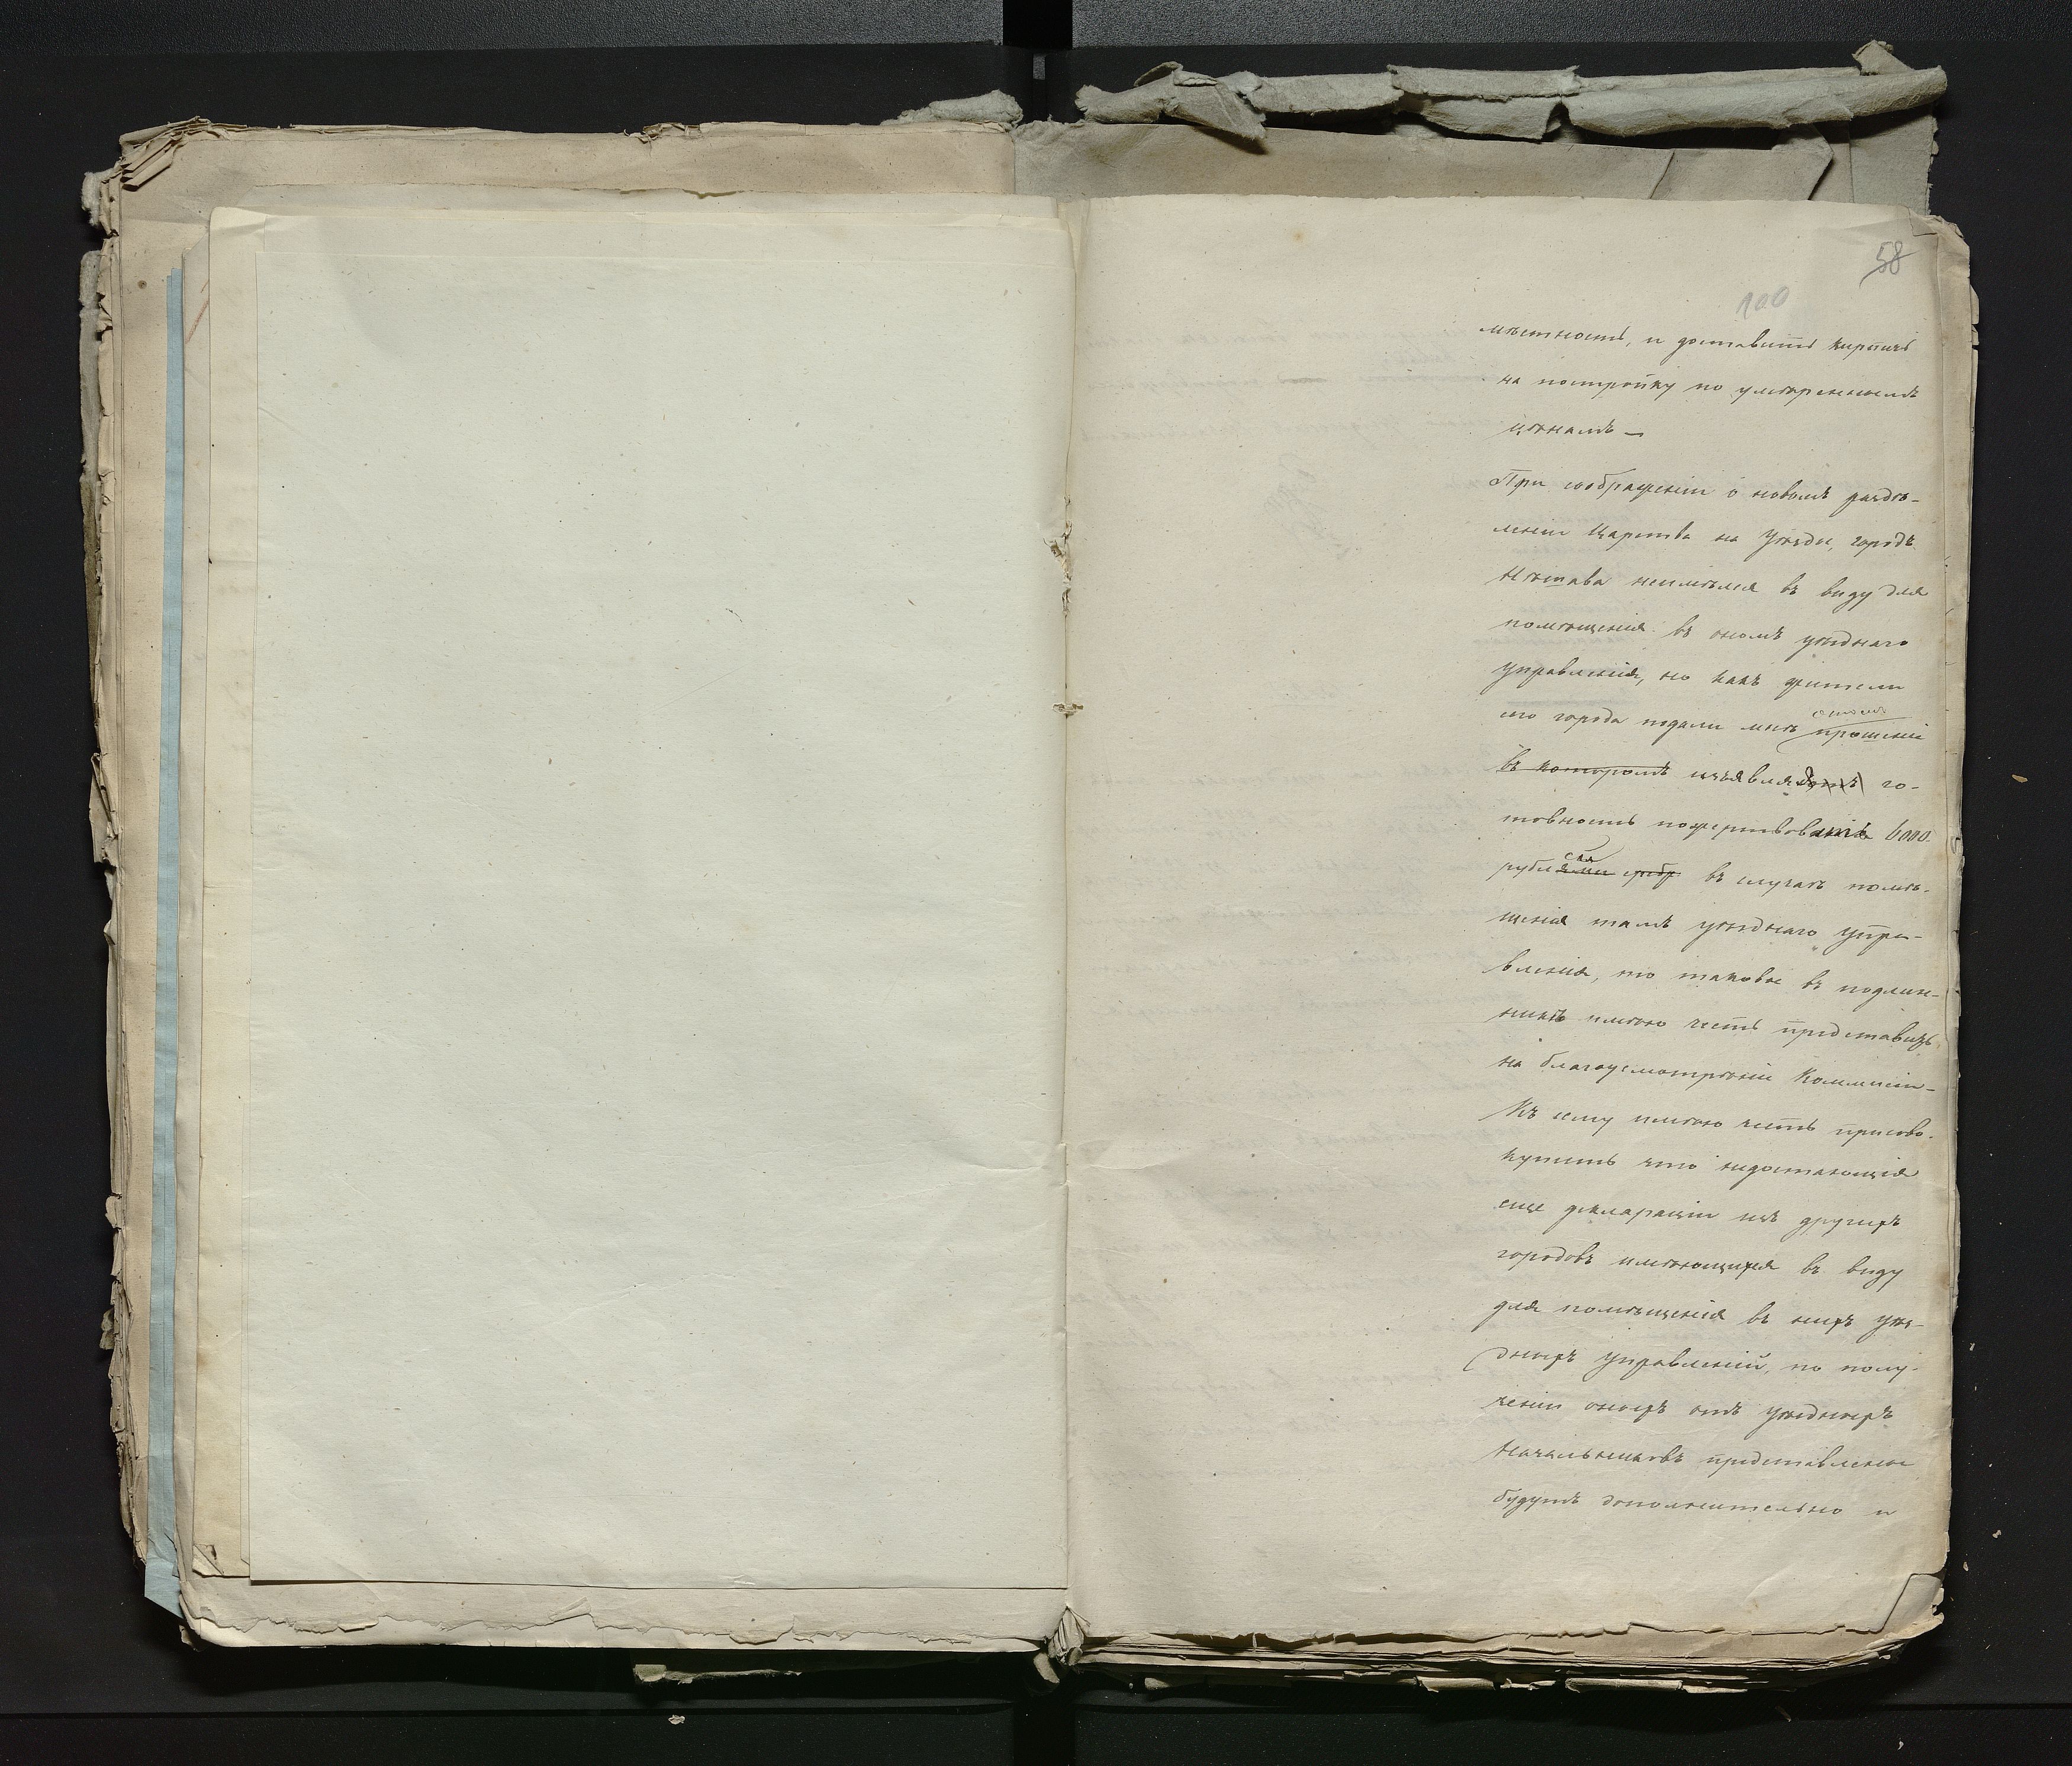 58
100
мѣстность, и доставить кирпичь
на постройку по умѣреннымъ
цѣнамъ —
При соображеніи о новомъ раздѣ-
леніи Царства на Уѣзды, городъ
неимѣлся въ виду для
помѣщенія въ ономъ уѣзднаго
управленія, но какъ жители
сего города подали мнѣ прошеніе
въ которомъ изъявляя го-
товность пожертвовать 6000
рубл въ случаѣ помѣ-
щенія тамъ уѣзднаго Упра-
вленія, то таковое въ подлин-
никѣ имѣю честь представить
на благоусмотрѣніе Коммисіи —
Къ сему имѣю честь присово-
купить что недостающія
еще декларации изъ другихъ
городовъ имѣющихся въ виду
для помѣщенія въ нихъ Уѣз-
дныхъ Управленій, по полу-
ченіи оныхъ отъ Уѣздныхъ
Начальниковъ представлены
будутъ дополнительно и